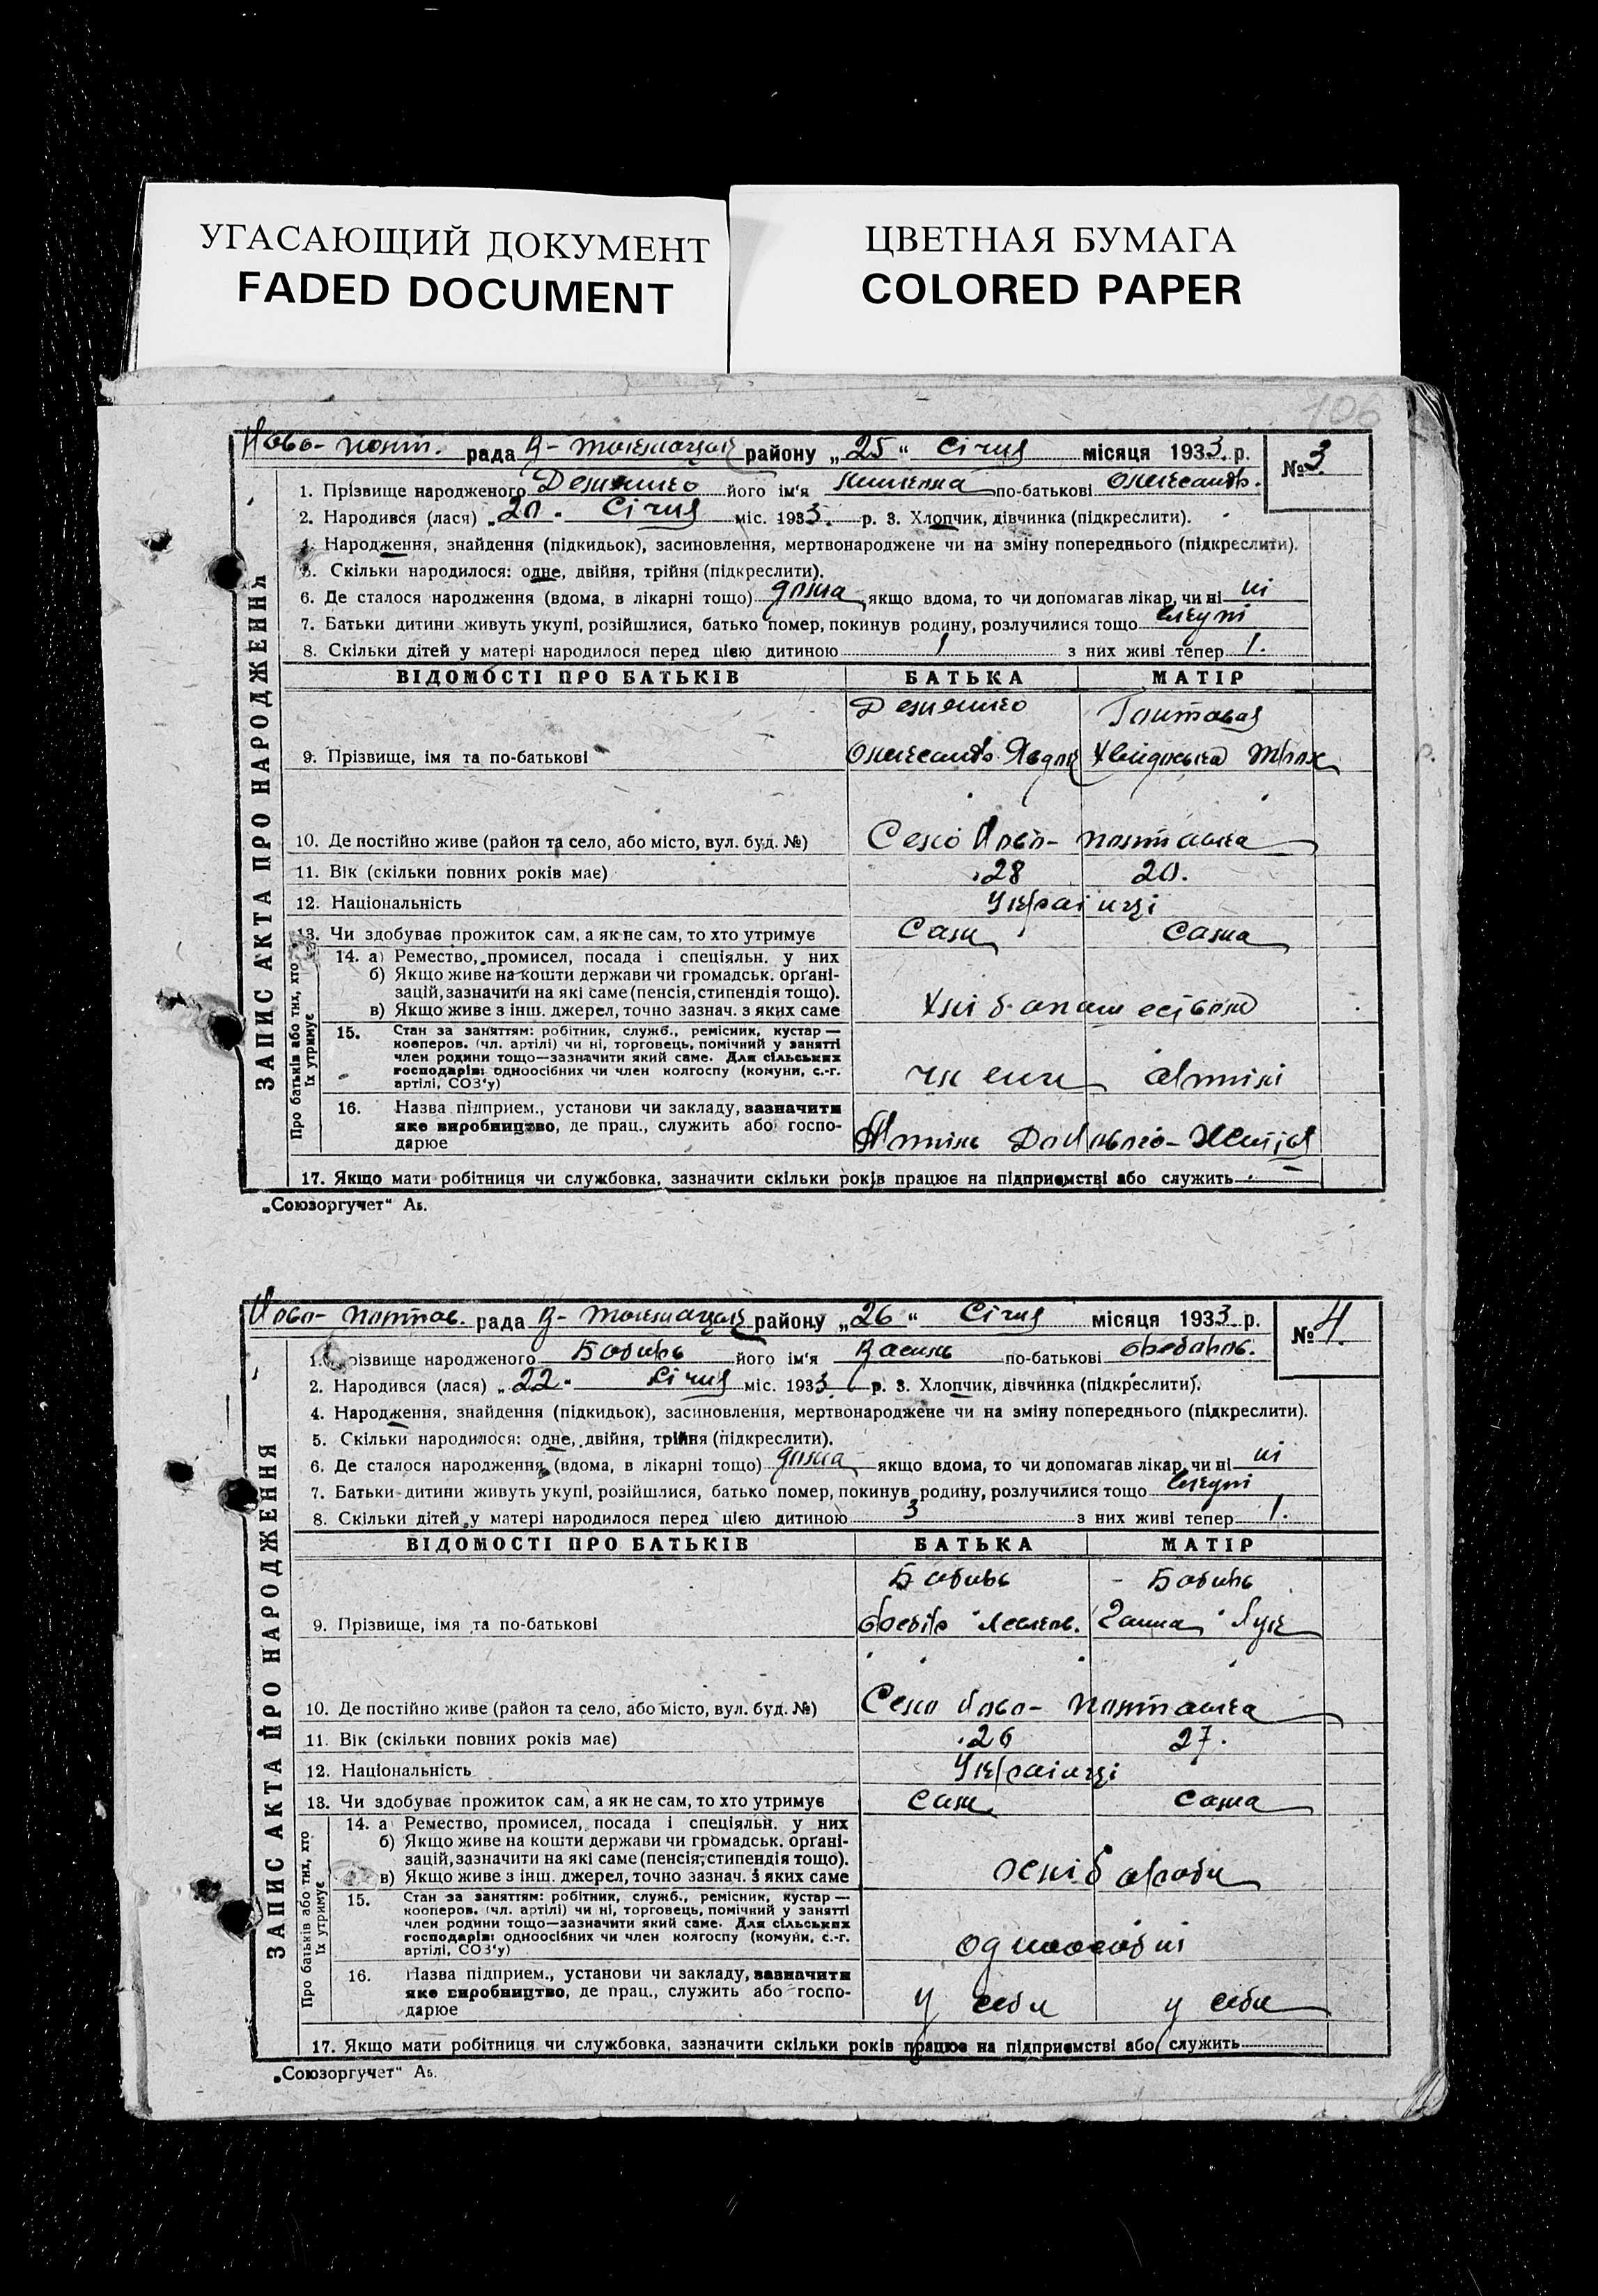 УГАСАЮЩИЙ ДОКУМЕНТ
FADED DOCUMENT
ЦВЕТНАЯ БУМАГА
COLORED PAPER
106
Ново-Полт. рада В-Токмацьк району „25“ Січня місяця 1933 р. №3
1. Прізвище народженого його ім'я по-батькові Олександр.
2. Народився (лася) „20. Січня міс. 1933. р. 3. Хлопчик, дівчинка (підкреслити).
4. Народження, знайдення (підкидьок), засиновлення, мертвонароджене чи на зміну попереднього (підкреслити).
5. Скільки народилося: одне, двійня, трійня (підкреслити).
6. Де сталося народження (вдома, в лікарні тощо) дома, якщо вдома, то чи допомагав лікар, чи ні ні
7. Батьки дитини живуть укупі, розійшлися, батько помер, покинув родину, розлучилися тощо вкупі
8. Скільки дітей у матері народилося перед цією дитиною 1 з них живі тепер 1.
ВІДОМОСТІ ПРО БАТЬКІВ БАТЬКА МАТІР
9. Прізвище, імя та по-батькові Олександр
10. Де постійно живе (район та село, або місто, вул. буд. №) Село Ново-Полтавка
11. Вік (скільки повних років має) 28 20.
12. Національність Українці
13. Чи здобуває прожиток сам, а як не сам, то хто утримує Сам Сама
14. а) Ремество, промисел, посада і спеціяльн. у них
б) Якщо живе на кошти держави чи громадськ. орґані-
зацій, зазначити на які саме (пенсія, стипендія тощо).
в) Якщо живе з інш. джерел, точно зазнач. з яких саме
15. Стан за заняттям: робітник, служб., ремісник, кустар —
кооперов. (чл. артілі) чи ні, торговець, помічний у занятті
член родини тощо—зазначити який саме. Для сільських
господарів: одноосібних чи член колгоспу (комуни, с.-г.
артілі, СОЗ'у) члени артілі
16. Назва підприєм., установи чи закладу, зазначити
яке виробництво, де прац., служить або госпо-
дарює Артіль
17. Якщо мати робітниця чи службовка, зазначити скільки років працює на підприємстві або служить —
ЗАПИС АКТА ПРО НАРОДЖЕННЯ
Про батьків або тих, хто
їх утримує
„Союзоргучет“ Аь.
Ново-Полтав. рада В-Токмацьк району „26“ Січня місяця 1933 р. №4.
1. Прізвище народженого Бабирь його ім'я Василь по-батькові
2. Народився (лася) „22“ Січня міс. 1933 р. 3. Хлопчик, дівчинка (підкреслити).
4. Народження, знайдення (підкидьок), засиновлення, мертвонароджене чи на зміну попереднього (підкреслити).
5. Скільки народилося: одне, двійня, трійня (підкреслити).
6. Де сталося народження (вдома, в лікарні тощо) дома якщо вдома, то чи допомагав лікар, чи ні ні
7. Батьки дитини живуть укупі, розійшлися, батько помер, покинув родину, розлучилися тощо вкупі
8. Скільки дітей у матері народилося перед цією дитиною 3 з них живі тепер 1.
ВІДОМОСТІ ПРО БАТЬКІВ БАТЬКА МАТІР
Бабирь Бабирь
9. Прізвище, імя та по-батькові Ганна
10. Де постійно живе (район та село, або місто, вул. буд. №) Село Ново-Полтавка
11. Вік (скільки повних років має) 26 27.
12. Національність Українці
13. Чи здобуває прожиток сам, а як не сам, то хто утримує сам сама
14. а Ремество, промисел, посада і спеціяльн. у них
б) Якщо живе на кошти держави чи громадськ. орґані-
зацій, зазначити на які саме (пенсія, стипендія тощо).
в) Якщо живе з інш. джерел, точно зазнач. з яких саме хлібароби
15. Стан за заняттям: робітник, служб., ремісник, кустар —
кооперов. (чл. артілі) чи ні, торговець, помічний у занятті
член родини тощо—зазначити який саме. Для сільських
господарів: одноосібних чи член колгоспу (комуни, с.-г.
артілі, СОЗ'у) одноосібні
16. Назва підприєм., установи чи закладу, зазначити
яке виробництво, де прац., служить або госпо-
дарює у себи у себи
17. Якщо мати робітниця чи службовка, зазначити скільки років працює на підприємстві або служить
ЗАПИС АКТА ПРО НАРОДЖЕННЯ
Про батьків або тих, хто
їх утримує
„Союзоргучет“ Аь.